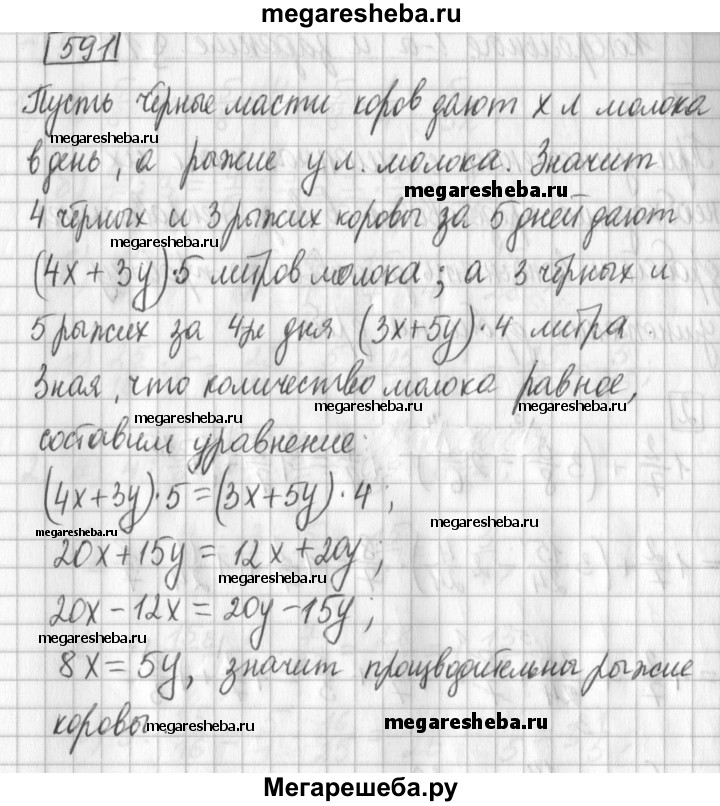 megaresheba.ru
591
Пусть чёрные масти коров дают x л молока
megaresheba.ru
в день, а рыжие y л. молока. Значит
megaresheba.ru
4 чёрных и 3 рыжих коровы за 5 дней дают
megaresheba.ru
(4x + 3y)·5 литров молока; а 3 чёрных и
5 рыжих за 4ре дня (3x+5y)·4 литра.
Зная, что количество молока равное,
megaresheba.ru megaresheba.ru megaresheba.ru
составим уравнение:
(4x+3y)·5=(3x+5y)·4;
megaresheba.ru megaresheba.ru
20x+15y = 12x+20y;
megaresheba.ru
20x-12x = 20y-15y;
megaresheba.ru
8x = 5y, значит производительны рыжие
коровы. megaresheba.ru megaresheba.ru
Мегарешеба.ру